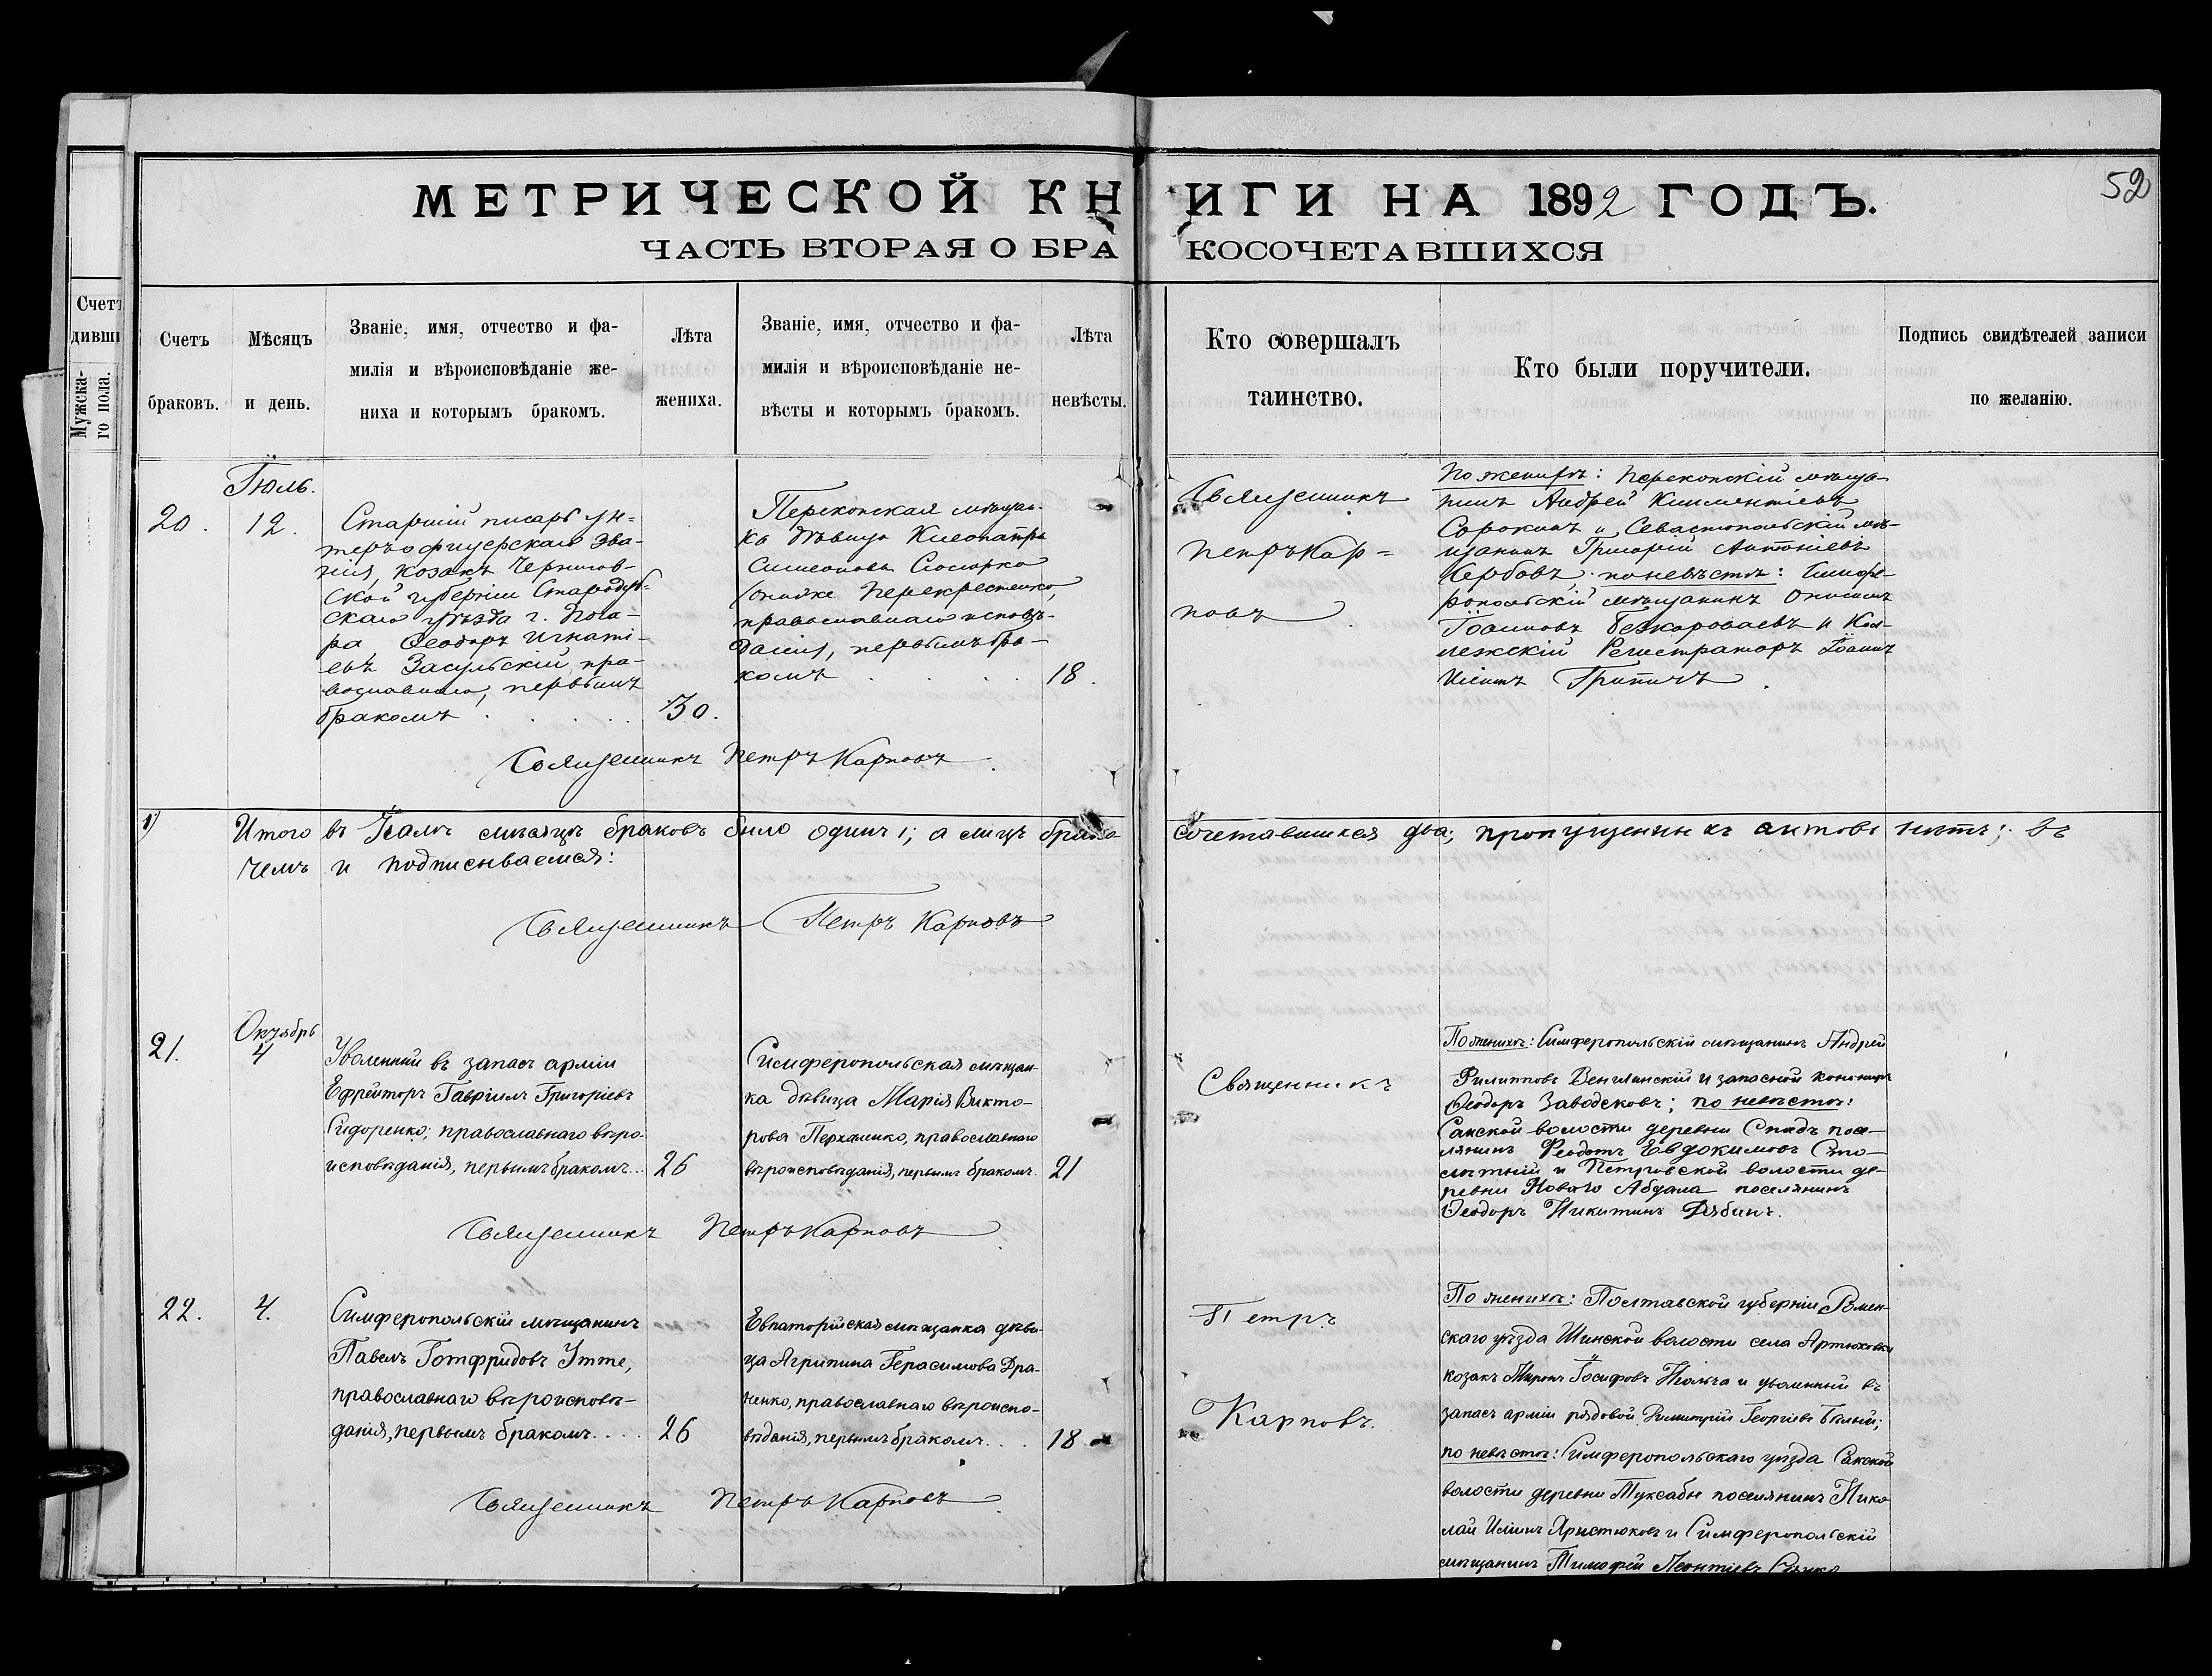 52
МЕТРИЧЕСКОЙ КНИГИ НА 1892 ГОДЪ.
ЧАСТЬ ВТОРАЯ О БРАКОСОЧЕТАВШИХСЯ
Счетъ
дивши
Мужска-
го пола.
Счетъ
браковъ.
Мѣсяцъ
и день.
Званіе, имя, отчество и фа-
милія и вѣроисповѣданіе же-
ниха и которымъ бракомъ.
Лѣта
жениха.
Званіе, имя, отчество и фа-
милія и вѣроисповѣданіе не-
вѣсты и которымъ бракомъ.
Лѣта
невѣсты.
Кто совершалъ
таинство.
Кто были поручители.
Подпись свидѣтелей записи
по желанію.
Іюль.
20.
12.
Старшій писарь ун-
теръ офицерскаго зва-
нія, козакъ Чернигов-
ской губерніи Стародуб-
скаго уѣзда г. Пога-
ра Ѳеодоръ Игнаті-
евъ Засульскій, пра-
вославнаго, первымъ
бракомъ
30.
Перекопская мѣщан-
ка дѣвица Клеопатра
Симеонова
Перекрестенко,
православнаго исповѣ-
данія, первымъ бра-
комъ
18.
Священникъ
Петръ Кар=
повъ
По женихѣ: Перекопскій мѣща-
нинъ Андрей Климентіевъ
Сорокинъ и Севастопольскій мѣ-
щанинъ Григорій Антоніевъ
Кербовъ; по невѣстѣ: Симфе-
ропольскій мѣщанинъ
Іоанновъ Безкороваевъ и Кол-
лежскій Регистраторъ Іоаннъ
Ильинъ
Священникъ Петръ Карповъ
Итого въ Іюлѣ мѣсяцѣ браковъ было одинъ 1; а лицъ брако сочетавшихся два; пропущенныхъ актовъ нѣтъ; въ
чемъ и подписываемся:
Священникъ Петръ Карповъ
21.
Октябрь
4
Уволенный въ запасъ арміи
Ефрейторъ Гавріилъ Григоріевъ
Сидоренко; православнаго вѣро-
исповѣданія, первымъ бракомъ...
26
Симферопольская мѣщан-
ка дѣвица Марія Викто-
рова Перхаменко, православнаго
вѣроисповѣданія, первымъ бракомъ.
21
Священникъ
По женихѣ: Симферопольскій мѣщанинъ Андрей
Филипповъ Венглинскій и запасной канониръ
Ѳеодоръ Заводсковъ; по невѣстѣ:
Сакской волости деревни Спадъ посе-
лянинъ Ѳеодотъ Евдокимовъ Сто-
лѣтній и Петровской волости де-
ревни Новаго Абдала поселянинъ
Ѳеодоръ Никитинъ Рябинъ.
Священникъ Петръ Карповъ
22.
4.
Симферопольскій мѣщанинъ
Павелъ Готфридовъ Утте,
православнаго вѣроисповѣ-
данія, первымъ бракомъ....
26
Евпаторійская мѣщанка дѣви-
ца Агрипина Герасимова Дра-
ненко, православнаго вѣроиспо-
вѣданія, первымъ бракомъ...
18
Петръ
Карповъ.
По женихѣ: Полтавской губерніи Ромен-
скаго уѣзда волости села Артюховки
козакъ Миронъ Іосифовъ и уволенный въ
запасъ арміи рядовой Димитрій Георгіевъ Бѣлый;
по невѣстѣ: Симферопольскаго уѣзда Сакской
волости деревни Туксабы поселянинъ Нико-
лай Ильинъ Христюковъ и Симферопольскій
мѣщанинъ Тимофей Леонтіевъ
Священникъ Петръ Карповъ